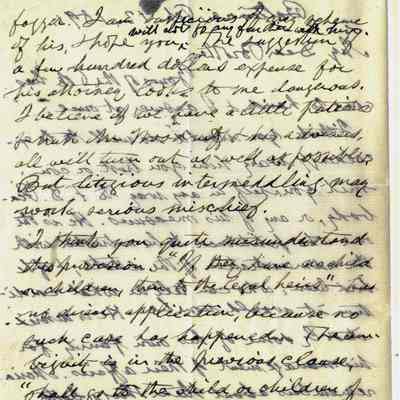 fogger. I am suspicious of any scheme
of his, & hope you will not go any further with him. The suggestion of
a few hundred dollars expense for
his attorney looks to me dangerous.
I believe if we have a little patience
with Mr. & his advisers,
all will turn out as well as possible.
But litigious intermeddling may
work serious mischief.
I think you quite misunderstand
the provision. "If they have no child
or children, then to the legal heirs" has
no direct application, because no
such case has happened. The am-
biguity is in the previous clause,
"shall go to the child or children of